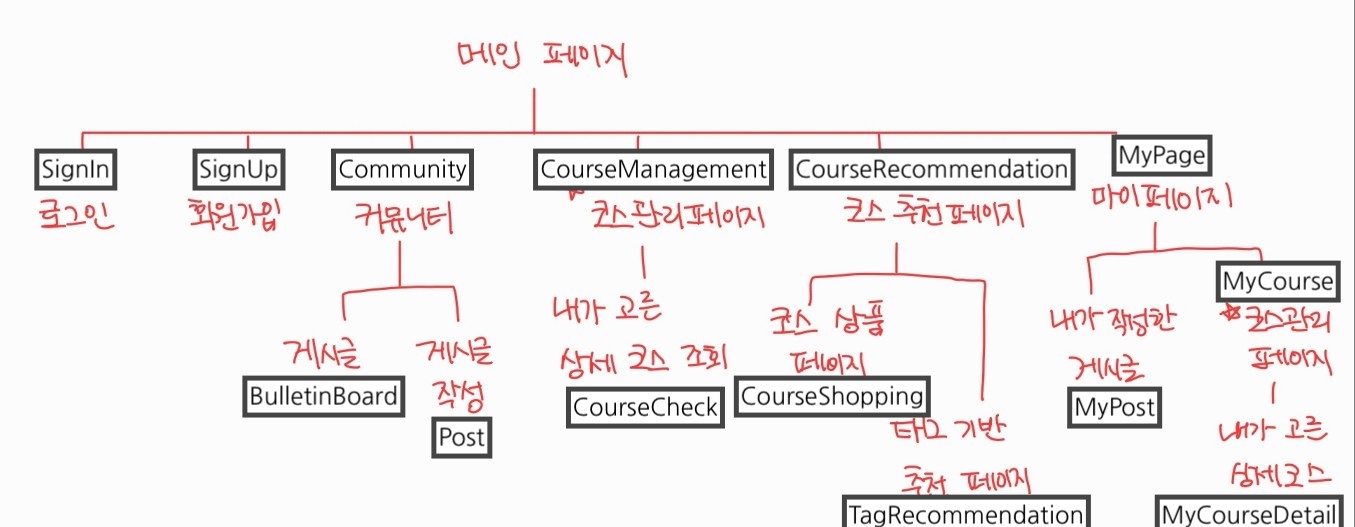 메인 페이지
SignIn
로그인
SignUp
회원가입
Community
커뮤니티
게시글
BulletinBoard
게시글
작성
Post
CourseManagement
* 코스관리페이지
내가 고른
상세 코스 조회
CourseCheck
CourseRecommendation
코스 추천 페이지
코스 상품
페이지
CourseShopping
태그 기반
추천 페이지
TagRecommendation
MyPage
마이페이지
내가 작성한
게시글
MyPost
MyCourse
* 코스관리
페이지
내가 고른
상세코스
MyCourseDetail